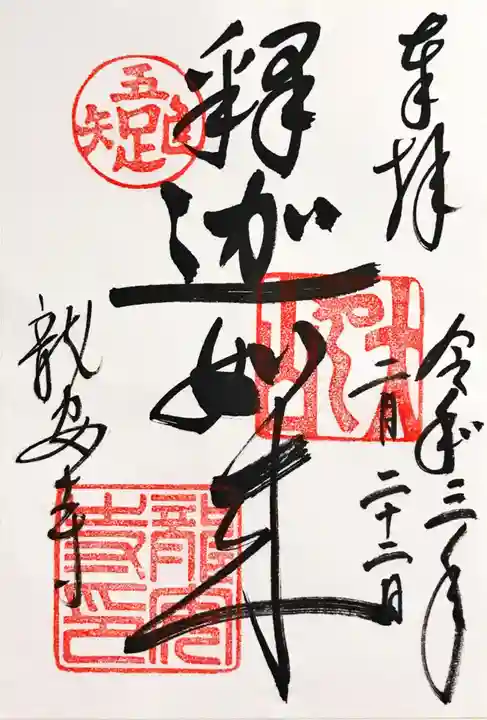 奉拝
令和三年
二月二十二日
釋迦如来
龍安寺
吾唯足知
龍安寺印